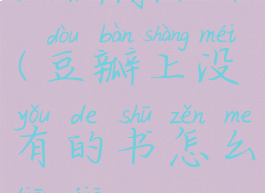 dòu bàn shàng méi
(豆瓣上没
yǒu de shū zěn me
有的书怎么